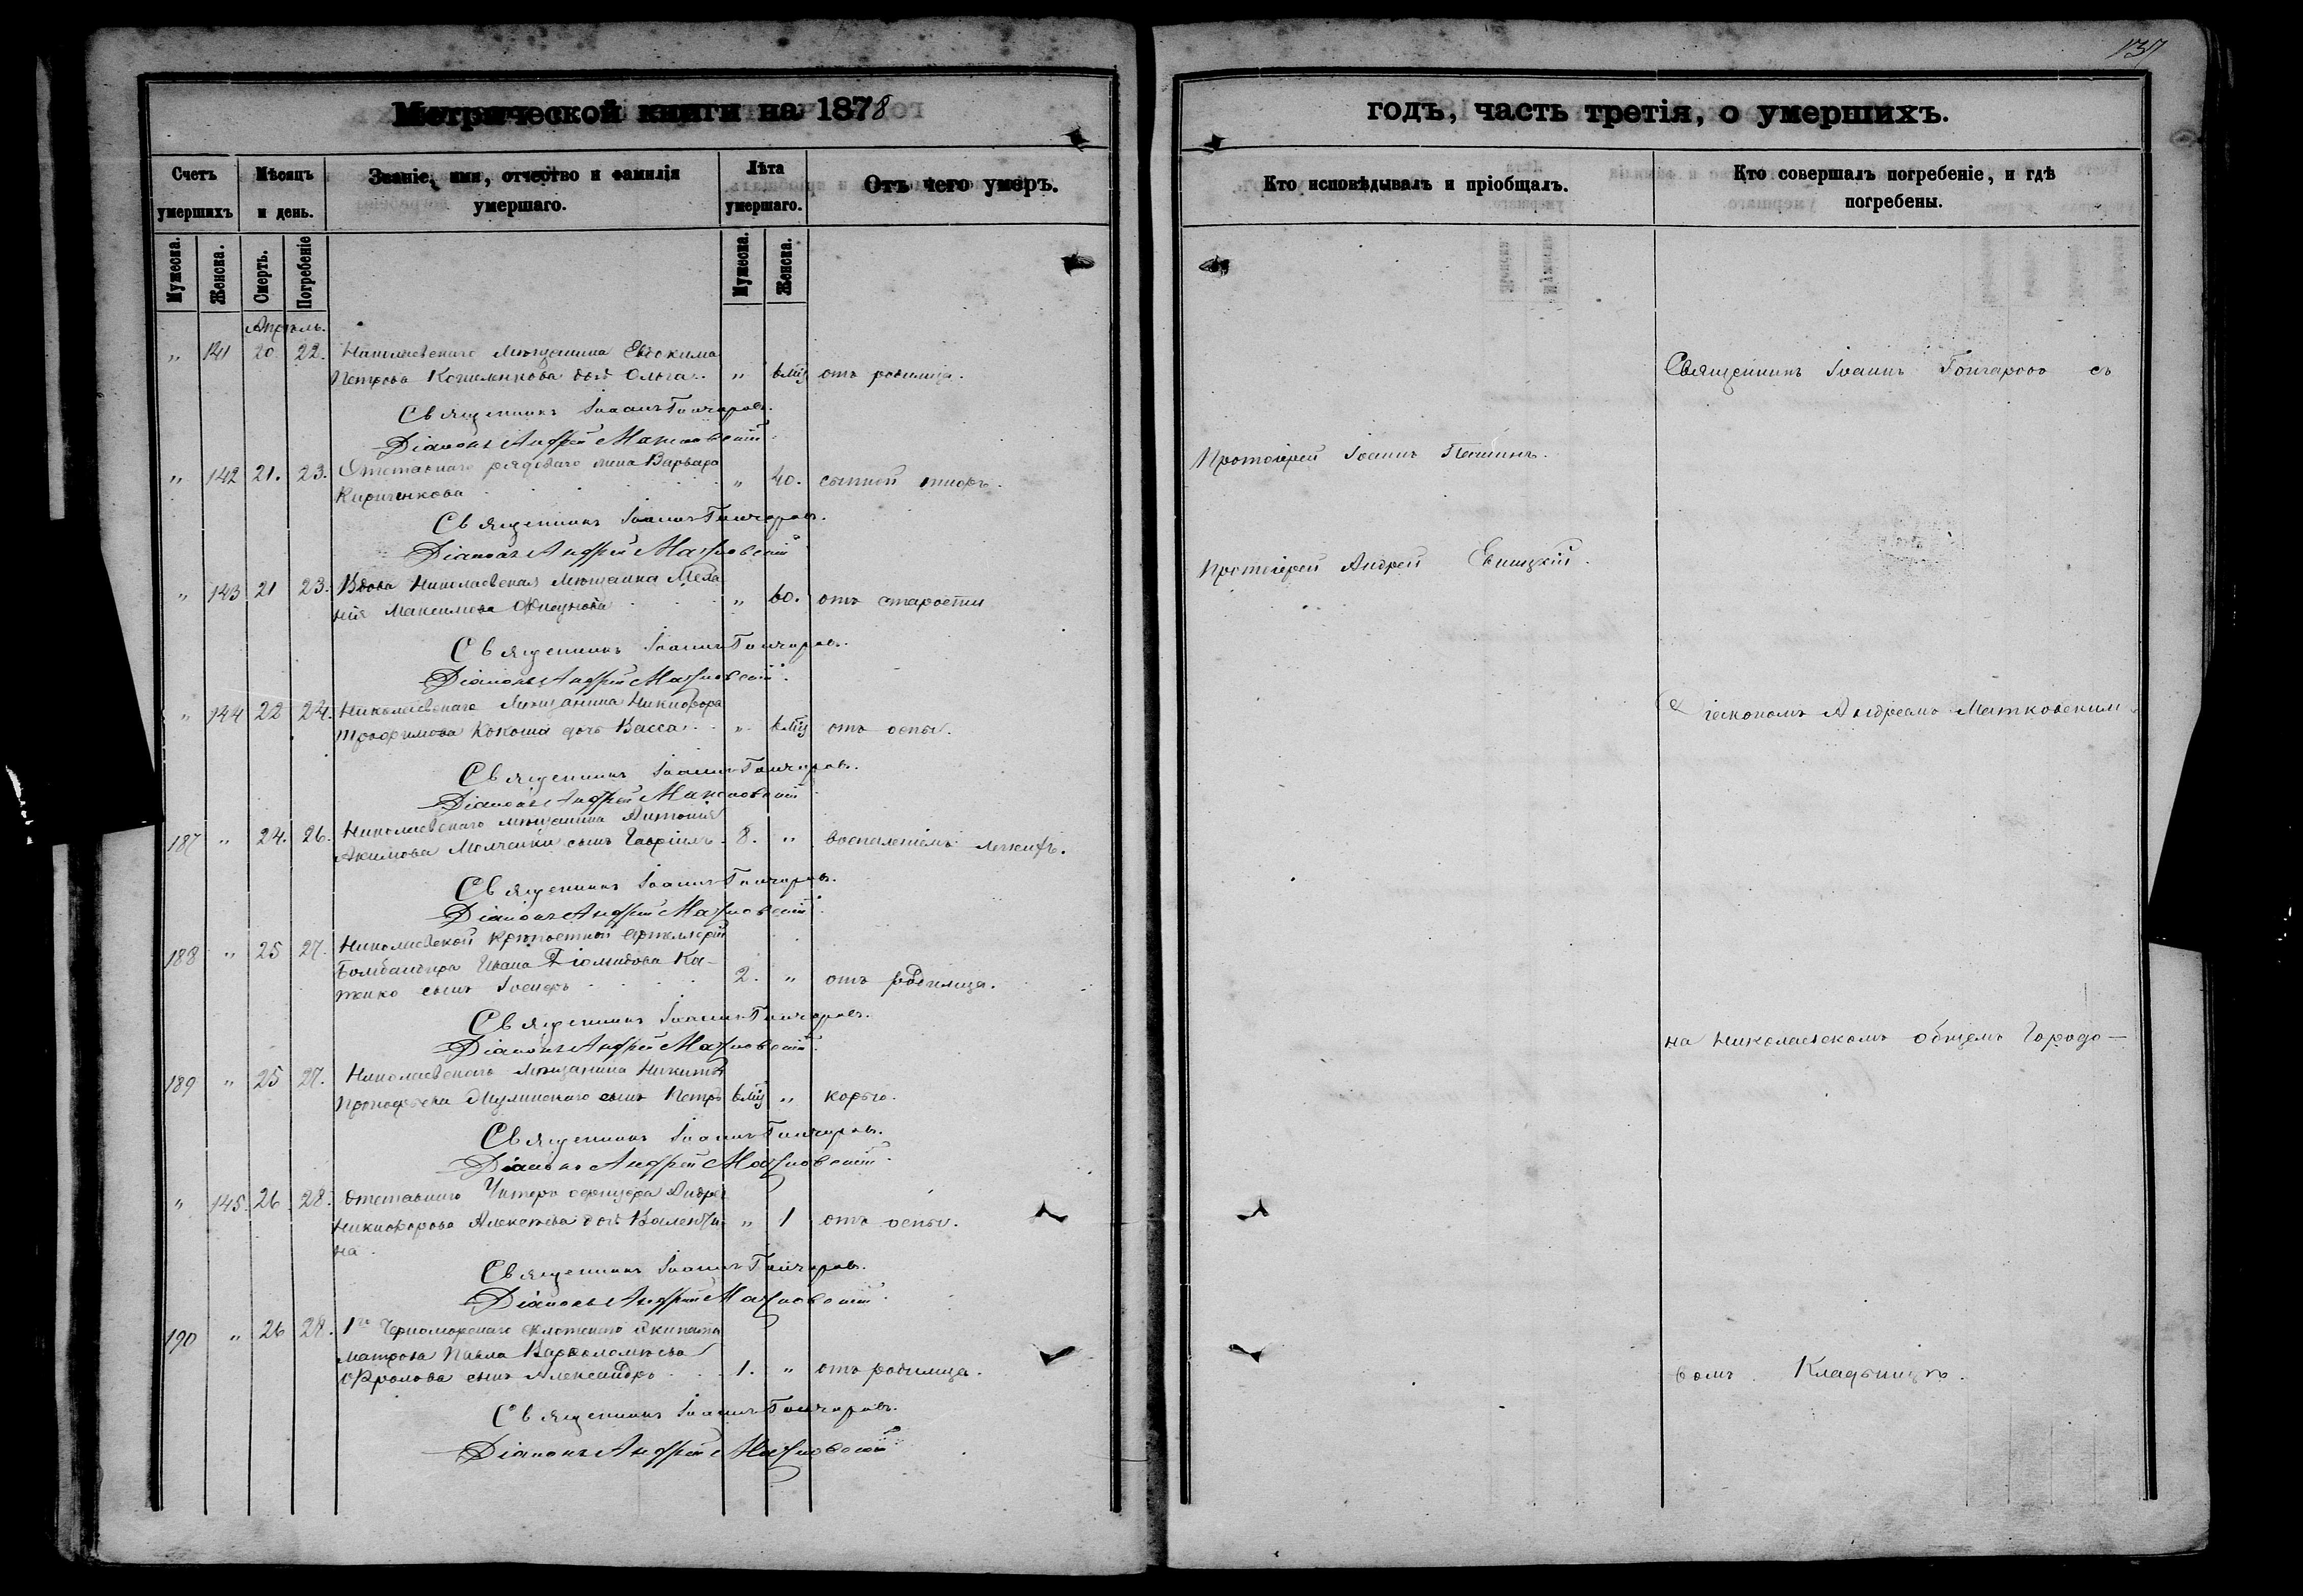 137
Метрической книги на 1878
годъ, часть третія, о умершихъ.
Счетъ умершихъ
Мѣсяцъ и день.
Званіе, имя, отчество и фамилія умершаго.
Лѣта умершаго.
Отъ чего умеръ.
Кто исповѣдывалъ и пріобщалъ.
Кто совершалъ погребеніе, и гдѣ погребены.
Мужеска.
Женска.
Смерть.
Погребеніе
Мужеска.
Женска.
Апрѣль.
" 141 20 22. Николаевскаго мѣщанина Евдокима
Петрова дочь Ольга " 6 мц отъ родимца.
Священникъ Іоаннъ Гончаровъ съ
Священникъ Іоаннъ Гончаровъ.
Діаконъ Андрей Матковскій.
" 142 21. 23. Отставнаго рядоваго жена Варвара
Кириченкова " 40. сыпной тифъ.
Протоіерей Іоаннъ
Священникъ Іоаннъ Гончаровъ.
Діаконъ Андрей Матковскій
" 143 21 23. Вдова Николаевская мѣщанка Мела
нія Максимова " 60. отъ старости
Протоіерей Андрей
Священникъ Іоаннъ Гончаровъ.
Діаконъ Андрей Матковскій.
" 144 22 24. Николаевскаго мѣщанина Никифора
Трофимова Кокоша дочь Васса " 6 мц отъ оспы.
Діакономъ Андреемъ Матковским
Священникъ Іоаннъ Гончаровъ.
Діаконъ Андрей Матковскій
187 " 24. 26. Николаевскаго мѣщанина Антонія
Акимова Молчанки сынъ Гавріилъ 8. " воспаленіемъ легкихъ.
Священникъ Іоаннъ Гончаровъ.
Діаконъ Андрей Матковскій.
188 " 25 27. Николаевской крѣпостной артиллеріи
Бомбандира Ивана Діомидова Ка-
тенко сынъ Іосифъ 2. " отъ родимца.
Священникъ Іоаннъ Гончаровъ.
Діаконъ Андрей Матковскій.
на Николаевскомъ общемъ Городо-
189 " 25 27. Николаевскаго мѣщанина Никиты
Прокофьева сынъ Петръ 6 мц " корью.
Священникъ Іоаннъ Гончаровъ.
Діаконъ Андрей Матковскій
" 145. 26 28. Отставнаго Унтеръ офицера Андрея
Никифорова Алексѣева дочь Валенти
на " 1 отъ оспы.
Священникъ Іоаннъ Гончаровъ.
Діаконъ Андрей Матковскій
190 " 26 28. 1го Черноморскаго флотскаго экипажа
матроса Павла Варфоломѣева
Фролова сынъ Александръ 1. " отъ родимца.
вомъ Кладбищѣ.
Священникъ Іоаннъ Гончаровъ.
Діаконъ Андрей Матковскій